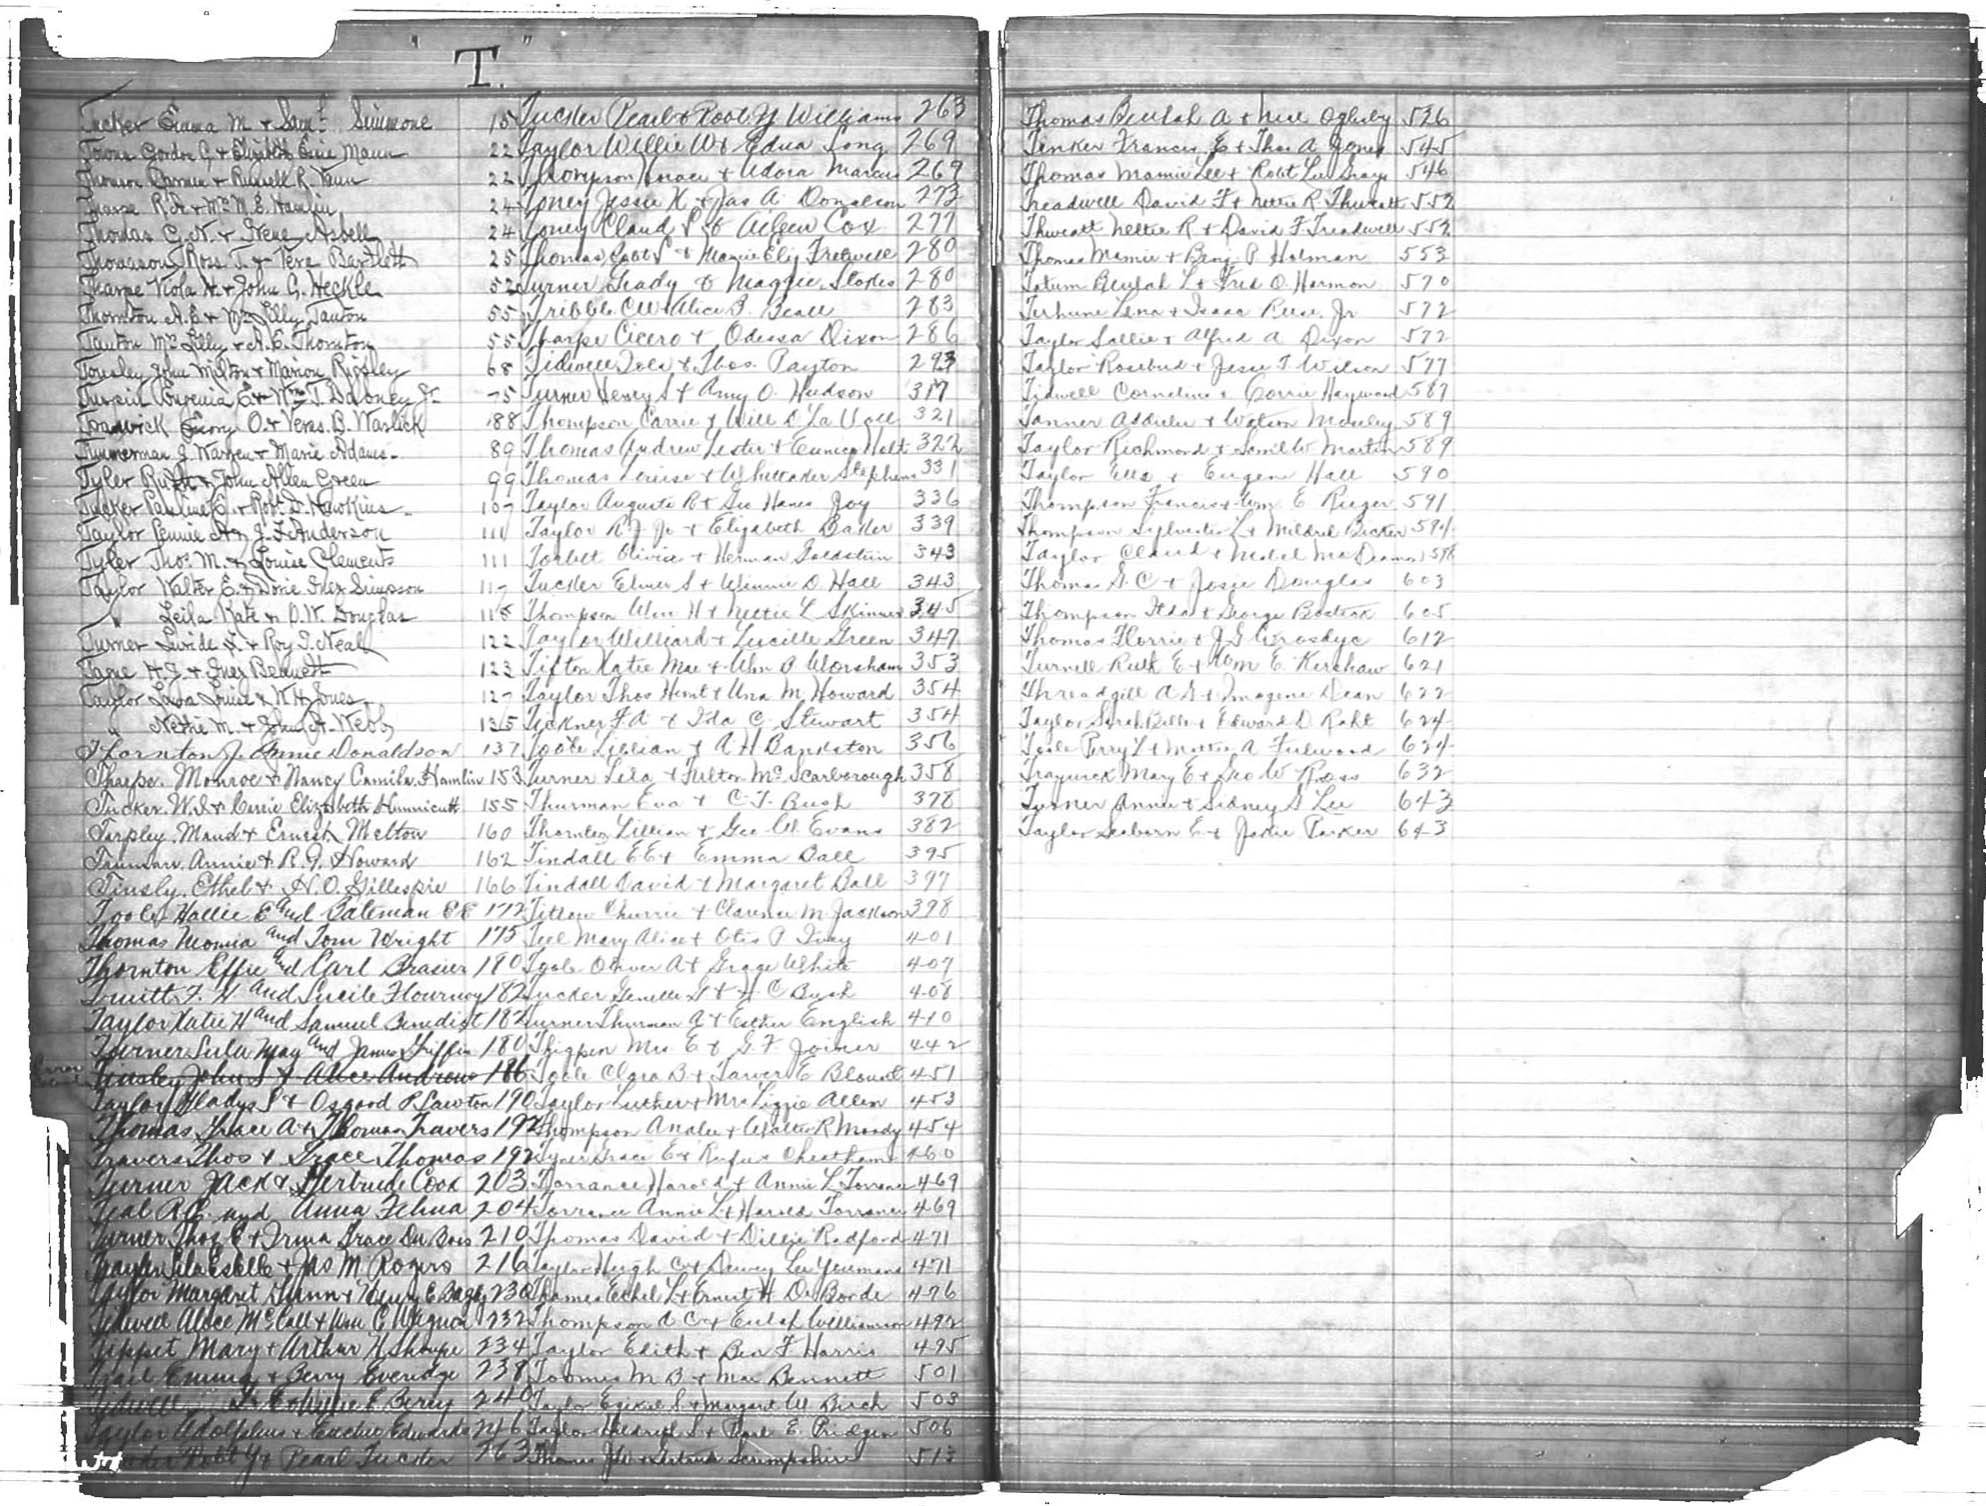 " T. "
Tucker Emma M. & Saml. Simmons 15
Towns Gordon G. & Elizabeth Mann 22
Thomson & Russell R. Vann 22
Tharpe R. H. & N. E. Hamlin 24
Thomas C. N. & Irene Asbell 24
Thomason Ross. T. & Vera Bartlett 25
Tharpe Viola H. & John G. Heckle 52
Thornton A. E. & Mrs Lilly Tanton 55
Tanton Mrs Lilly & A. E. Thornton 55
Tousley John Milton & Marion Ripley 68
Turpin Virginia & Wm. T. Dabney Jr. 75
O. & Vera B. Warlick 88
Timmerman J. Warren & Marie Adams 89
Tyler Ruth & John Allen Green 99
Tucker Pauline C. & Robt. D. Hawkins 107
Taylor Jennie A. & J. F. Anderson 111
Tyler Thos. M. & Louise Clements 111
Taylor Walter E. & Inez Simpson 117
" Leila Kate & O. W. Douglas 118
Turner & Roy T. Neal 122
H. J. & Inez Bennett 123
Taylor Louise & W. H. Jones 127
" Nettie M. & John A. Webb 135
Thornton J. Annie Donaldson 137
Tharpe. Monroe & Nancy Camila Hamlin 153
Tucker. W. I. & Carrie Elizabeth Hunnicutt 155
Tarpley. Maud & Ernest Melton 160
Truman. Annie & R. J. Howard 162
Tinsly. Ethel & H. O. Gillespie 166
Toole Hallie E and Bateman E E 172
Thomas Momia and Tom Wright 175
Thornton Effie and Carl Brasier 180
Truitt F. H and Lucile Flournoy 182
Taylor Katie H and Samuel Benedict 182
Turner Lula May and James Griffin 180
Tinsley John S & Alice Andrews 186
Taylor Gladys S & Osgood P. Lawton 190
Thomas Grace A & Thomas Travers 192
Travers Thos & Grace Thomas 192
Turner Jack & Gertrude Cook 203
Teal R. C. and Anna 204
Turner Thos E & Irma Grace Du Bois 210
& Jas M Rogers 216
Taylor Margaret Gunn & Henry E 230
Tidwell Alice McCall & Wm C Wagnon 232
Tippet Mary & Arthur H Sharpe 234
Emma & Berry Everidge 238
Tidwell E & Willie E Berry 240
Taylor Adolphus & Euchie Edwards 246
Robt Y & Pearl Tucker 263
Tucker Pearl & Robt Y Williams 263
Taylor Willie W & Edna Long 269
Thompson Horace & Adora Marcus 269
Toney Jessie K & Jas A Donalson 273
Toney Claud P & Aileen Cox 277
Thomas Robt S & Mamie Eliz Fretwell 280
Turner Grady & Maggie Stokes 280
Tribble C W & Alice B. Beall 283
Tharpe Cicero & Odessa Dixon 286
Tidwell Zola & Thos. Payton 293
Turner Henry S & Amy O. Hudson 317
Thompson Carrie & Will D La Vall 321
Thomas Andrew Lester & Eunice Holt 322
Thomas Louise & Whittaker Stephens 331
Taylor Augusta R & Geo Hanes Joy 336
Taylor R. J. Jr & Elizabeth Baker 339
Torbett Olivia & Herman Goldstein 343
Tucker Elmer S & Winnie D Hall 343
Thompson Wm H & Nettie L Skinner 345
Taylor Williard & Lucille Green 347
Tifton Katie Mae & Wm A Worsham 353
Taylor Thos Hunt & Una M Howard 354
Tuckner F A & Ida C Stewart 354
Toole Lillian & A H Bankston 356
Turner Lila & Fulton Mc Scarborough 358
Thurman Eva & C. T. Bush 378
Thornton Lillian & Geo W. Evans 382
Tindall E E & Emma Ball 395
Tindall David & Margaret Ball 397
Titlow Cherrie & Clarence M Jackson 398
Teel Mary Alice & Otis P Ivey 401
Toole Oliver A & Grace White 407
Tucker Genelle G & H C Bush 408
Turner Thurman J & Esther English 410
Thigpen Mrs E & G. F. Joiner 442
Toole Clara B & Tarver E Blount 451
Taylor Luther & Mrs Lizzie Allen 453
Thompson Analee & Walter R Moody 454
Tyner Grace E & Rufus Cheatham 460
Torrance Harold & Annie L Torrance 469
Torrance Annie L & Harold Torrance 469
Thomas David & Dillie Radford 471
Taylor Hugh C & Dewey Lee Yeumans 471
Thames Ethel L & Ernest H De Borde 476
Thompson A C & Eulah Williamson 492
Taylor Edith & Ben F Harris 495
Toomes M B & Mae Bennett 501
Taylor Ezikel S & Margaret W Birch 503
Taylor Hildryl S & Pearl E. Pridgen 506
Thomas J W & Gertrude Scrimpshire 513
Thomas Beulah A & Oglesby 526
Tinker Francis E & Thos A Jones 545
Thomas Mamie Lee & Robt Lee Grays 546
Treadwell David F & Nettie R Thweatt 552
Thweatt Nettie R & David F Treadwell 552
Thomas Mamie & Benj P Holman 553
Tatum Beulah L & Fred O. Harmon 570
Terhune Lena & Isaac Reese Jr 572
Taylor Sallie & Alfred A Dixon 572
Taylor Rosebud & Jesse T Wilson 577
Tidwell Cornelius & Corrie Haywood 587
Tanner Addielu & Watson Mosley 589
Taylor Richmond & Saml W Martin 589
Taylor Ella & Eugene Hall 590
Thompson Francis & Wm E Rieger 591
Thompson Sylvester L & Mildred Becker 594
Taylor Claud & Mabel McDeamon 598
Thomas G. C & Josze Douglas 603
Thompson Ilda & George Bostick 605
Thomas Florrie & J G Crosdyc 612
Turnell Ruth E & Wm E Kershaw 621
Threadgill A G & Imogene Dean 622
Taylor Sarah Belle & Edward D Raht 624
Toole Perry L & Mattie A Fulwood 624
Traywick Mary E & Geo W Ross 632
Turner Annie & Sidney S Lee 643
Taylor Seaborn E & Jodie Parker 643